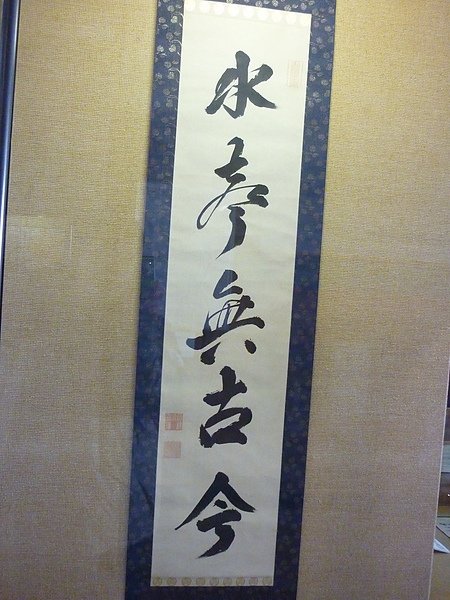 水無古今